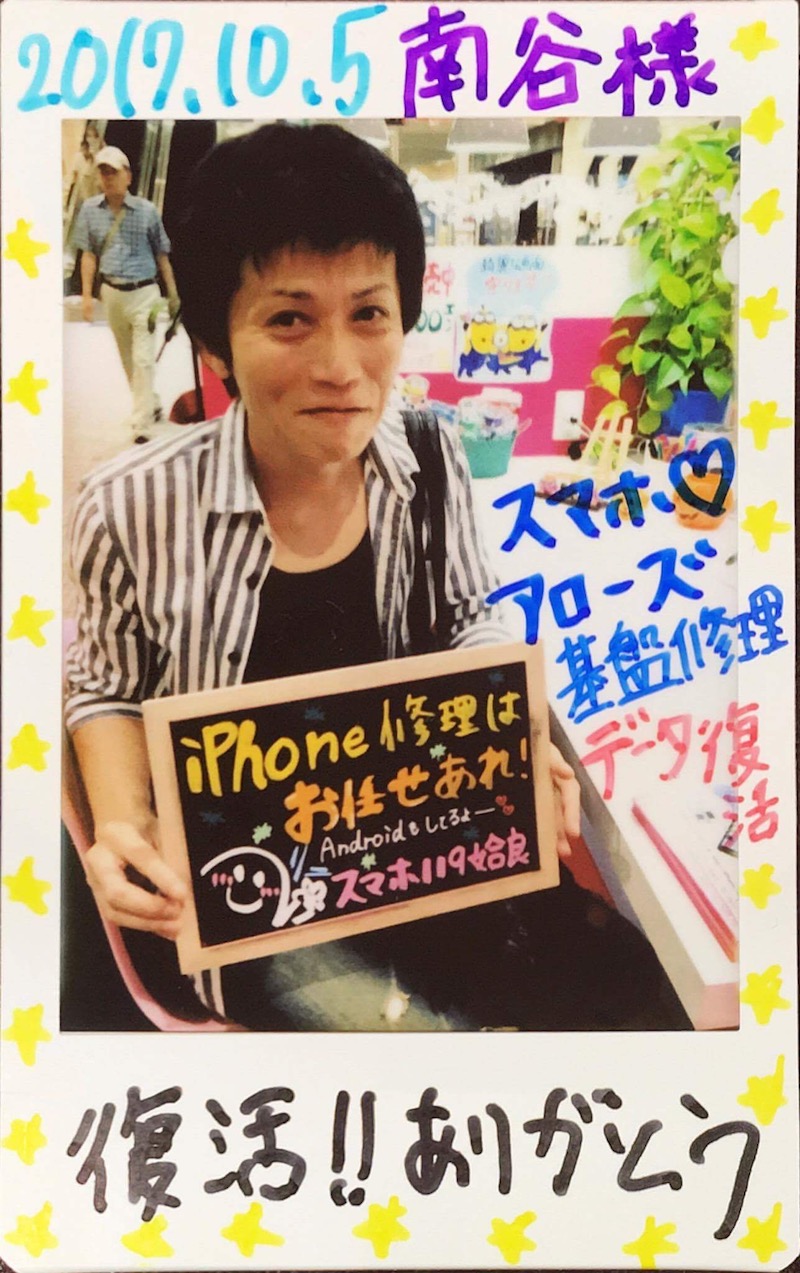 2017.10.5 南谷様
スマホ♡
アローズ
基盤修理
データ復
活
iPhone修理は
お任せあれ!
Androidもしてるよー♡
スマホ119姶良
復活!!ありがとう